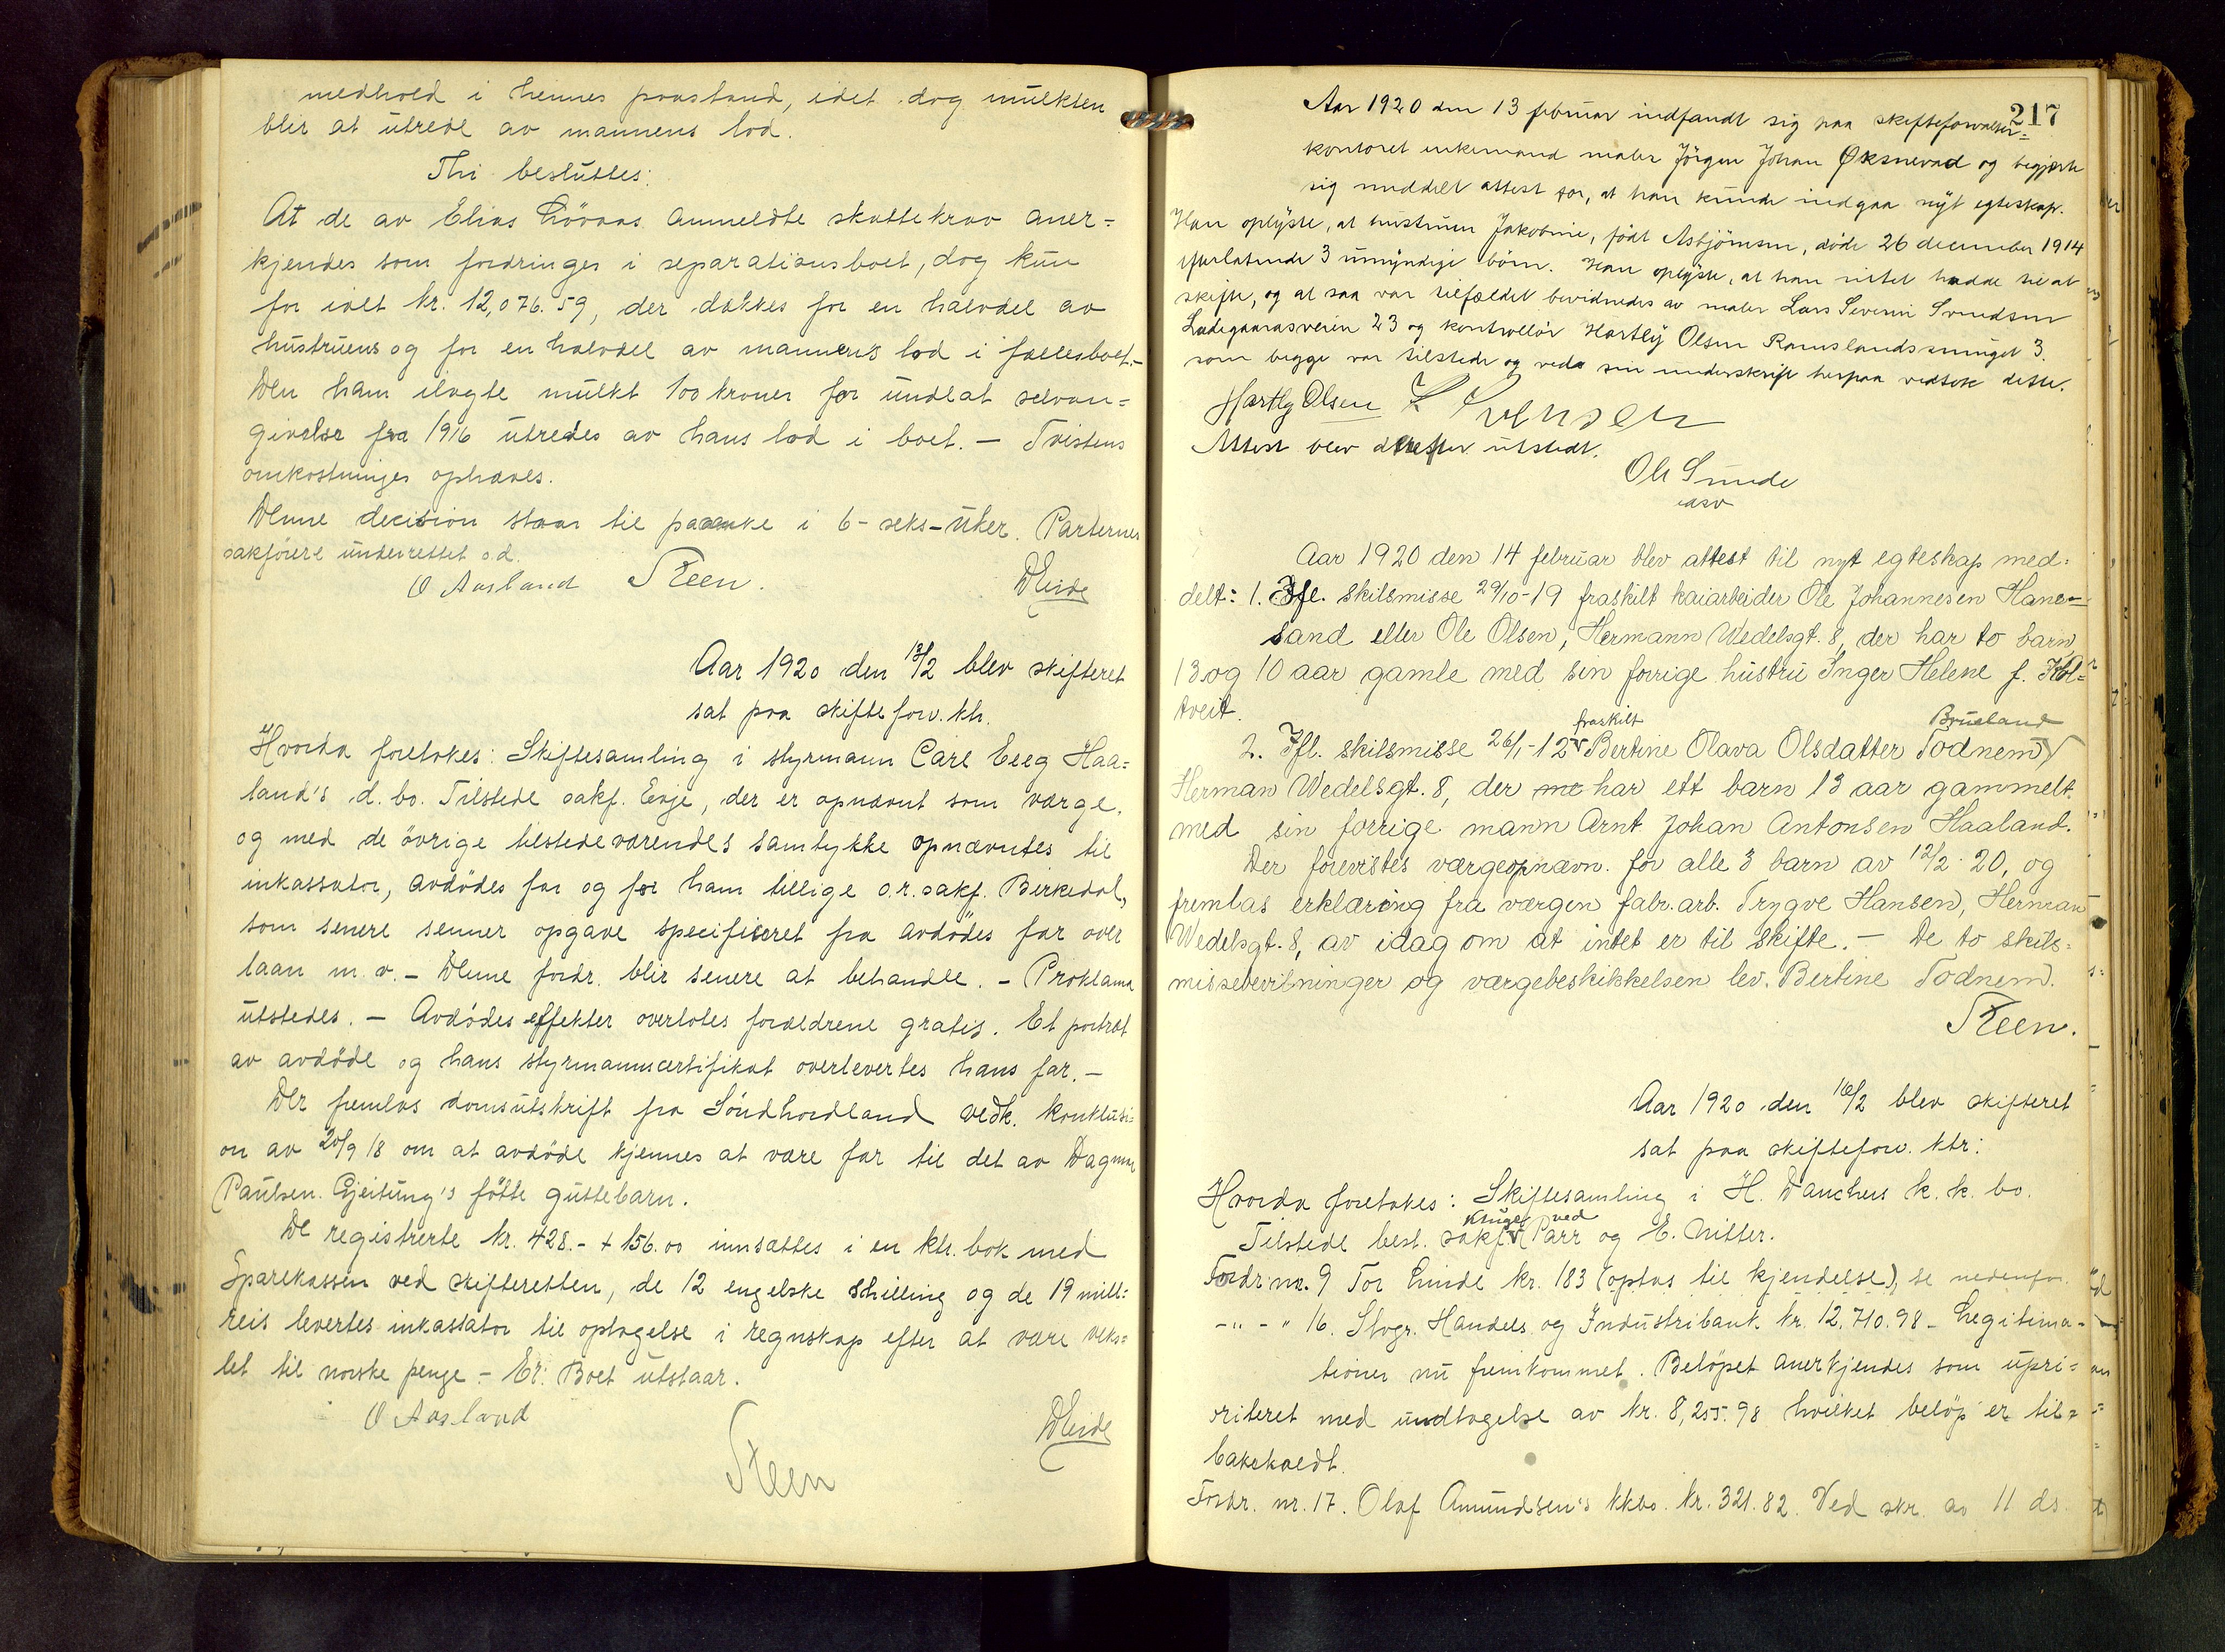 medhold i hennes paastand, idet dog mulkten
blir at utrede av mannens lod.
Thi besluttes:
At de av Elias Løvaas anmeldte skattekrav aner=
kjendes som fordringer i separationsboet, dog kun
for ialt kr. 12,076.59, der dækkes for en halvdel av
hustruens og for en halvdel av mannens lod i fællesboet.-
Den ham ilagte mulkt 100 kroner for undlat selvan=
givelse fra 1916 utredes av hans lod i boet. - Tvistens
omkostninger ophæves.
Denne decision staar til paaanke i 6-seks-uker. Parternes
sakførere underrettet s.d.
O Aasland Steen.
Aar 1920 den 13/2 blev skifteret
sat paa skifteforv. ktr.
Hvorda foretokes: Skiftesamling i styrmann Carl Eeeg Haa=
land's d. bo. Tilstede sakf. Eeje, der er opnævnt som værge,
og med de øvrige tilstedeværendes samtykke opnævntes til
inkassator, avdødes far og for ham tillige o.r.sakf. Birkedal,
som senere senner opgave specificeret fra avdødes far over
laan m.v. - Denne fordr. blir senere at behandle. - Proklama
utstedes. - Avdødes effekter overlotes forældrene gratis. Et portræt
av avdøde og hans styrmannscertifikat overlevertes hans far. -
Der fremlas domsutskrift fra Søndhordland vedk. konklusi=
on av 20/9 18 om at avdøde kjennes at være far til det av Dagmar
Paulsen Gjeitung's fødte guttebarn.
De registrerte kr. 428.- + 156.00 innsattes i en ktr. bok med
Sparekassen ved skifteretten, de 12 engelske shilling og de 19 mill=
reis levertes inkassator til optagelse i regnskap efter at være veks=
let til norske penge. - Er: Boet utstaar.
O Aasland
Steen
217
Aar 1920 den 13 februar indfandt sig paa skifteforvalter=
kontoret enkemand maler Jørgen Johan Øksnevad og begjærte
sig meddelt attest for, at han kunde indgaa nyt egteskap.
Han oplyste, at hustruen Jakobine, født Asbjørnsen, døde 26 december 1914
efterlatende 3 umyndige børn. Han oplyste, at han intet hadde til at
skifte, og at saa var tilfældet bevidnedes av maler Lars Severin Svendsen
Ladegaardsveien 23 og kontrollør Hartly Olsen Ramslandssmuget 3.
som begge var tilstede og ved sin underskrift herpaa vedtok dette.
Hartly Olsen L Svensen
Attest blev derefter utstedt.
Ole Sunde
asv
Aar 1920 den 14 februar blev attest til nyt egteskap med=
delt: 1. Ifl. skilsmisse 29/10-19 fraskilt kaiarbeider Ole Johannesen Hane=
sand eller Ole Olsen, Hermann Wedelsgt. 8, der har to barn,
13 og 10 aar gamle med sin forrige hustru Inger Helene f. Kol=
tveit.
fraskilt Brueland
2. Ifl. skilsmisse 26/1-12 Bertine Olava Olsdatter Todnem
Herman Wedelsgt. 8, der har ett barn 13 aar gammelt
med sin forrige mann Arnt Johan Antonsen Haaland.
Der forevistes værgeopnævn. for alle 3 barn av 12/2-20, og
fremlas erklæring fra værgen fabr.arb. Trygve Hansen, Herman
Wedelsgt. 8, av idag om at intet er til skifte. - De to skils=
missebevilninger og værgebeskikkelsen lev. Bertine Todnem.
Steen.
Aar 1920 den 16/2 blev skifteret
sat paa skifteforv. ktr:
Hvorda foretokes: Skiftesamling i H. Danchers k.k. bo.
Kluges ved
Tilstede best. sakf. Parr og E. Nitter.
Fordr. nr. 9 Tor Linde kr. 183 (optas til kjendelse), se nedenfor.
- " - " 16. Stvgr. Handels og Industribank kr. 12,710.98 - Legitima-
tioner nu fremkommet. Beløpet anerkjendes som upri=
oriteret med undtagelse av kr. 8,255.98 hvilket beløp er til=
bakekaldt.
Fordr. nr. 17. Olaf Amundsen's kkbo. kr. 321.82. Ved skr. av 11 ds.